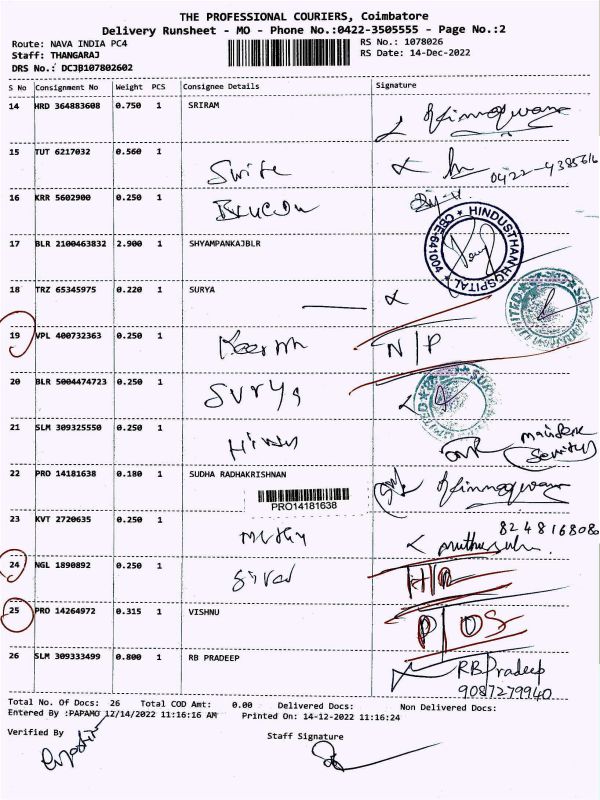 THE PROFESSIONAL COURIERS, Coimbatore
Delivery Runsheet - MO - Phone No.:0422-3505555 - Page No.:2
Route: NAVA INDIA PC4
RS No.: 1078026
Staff: THANGARAJ
RS Date: 14-Dec-2022
DRS No.: DCJB107802602
S No Consignment No Weight PCS Consignee Details Signature
14 HRD 364883608 0.750 1 SRIRAM
15 TUT 6217032 0.560 1 0422-4385616
16 KRR 5602900 0.250 1
17 BLR 2100463832 2.900 1 SHYAMPANKAJBLR HINDUSTHAN HOSPITAL CBE-641004
18 TRZ 65345975 0.220 1 SURYA
19 VPL 400732363 0.250 1 N/P
20 BLR 5004474723 0.250 1 Surya
21 SLM 309325550 0.250 1
22 PRO 14181638 0.180 1 SUDHA RADHAKRISHNAN
PRO14181638
23 KVT 2720635 0.250 1
24 NGL 1890892 0.250 1
25 PRO 14264972 0.315 1 VISHNU P/OS
26 SLM 309333499 0.800 1 RB PRADEEP RBPradeep
9087279940
Total No. Of Docs: 26 Total COD Amt: 0.00 Delivered Docs: Non Delivered Docs:
Entered By :PAPAMO 12/14/2022 11:16:16 AM Printed On: 14-12-2022 11:16:24
Verified By Staff Signature